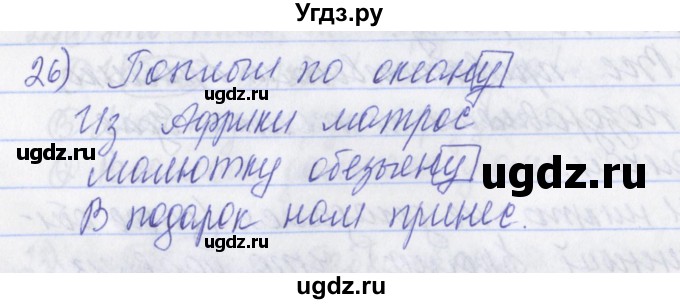 Угдз.ру
26) Поплыл по океану
ugdz.ru
Из Африки матрос
ugdz.ru
ugdz.ru
Малютку обезьяну
ugdz.ru
В подарок нам принес.
ugdz.ru
ugdz.ru